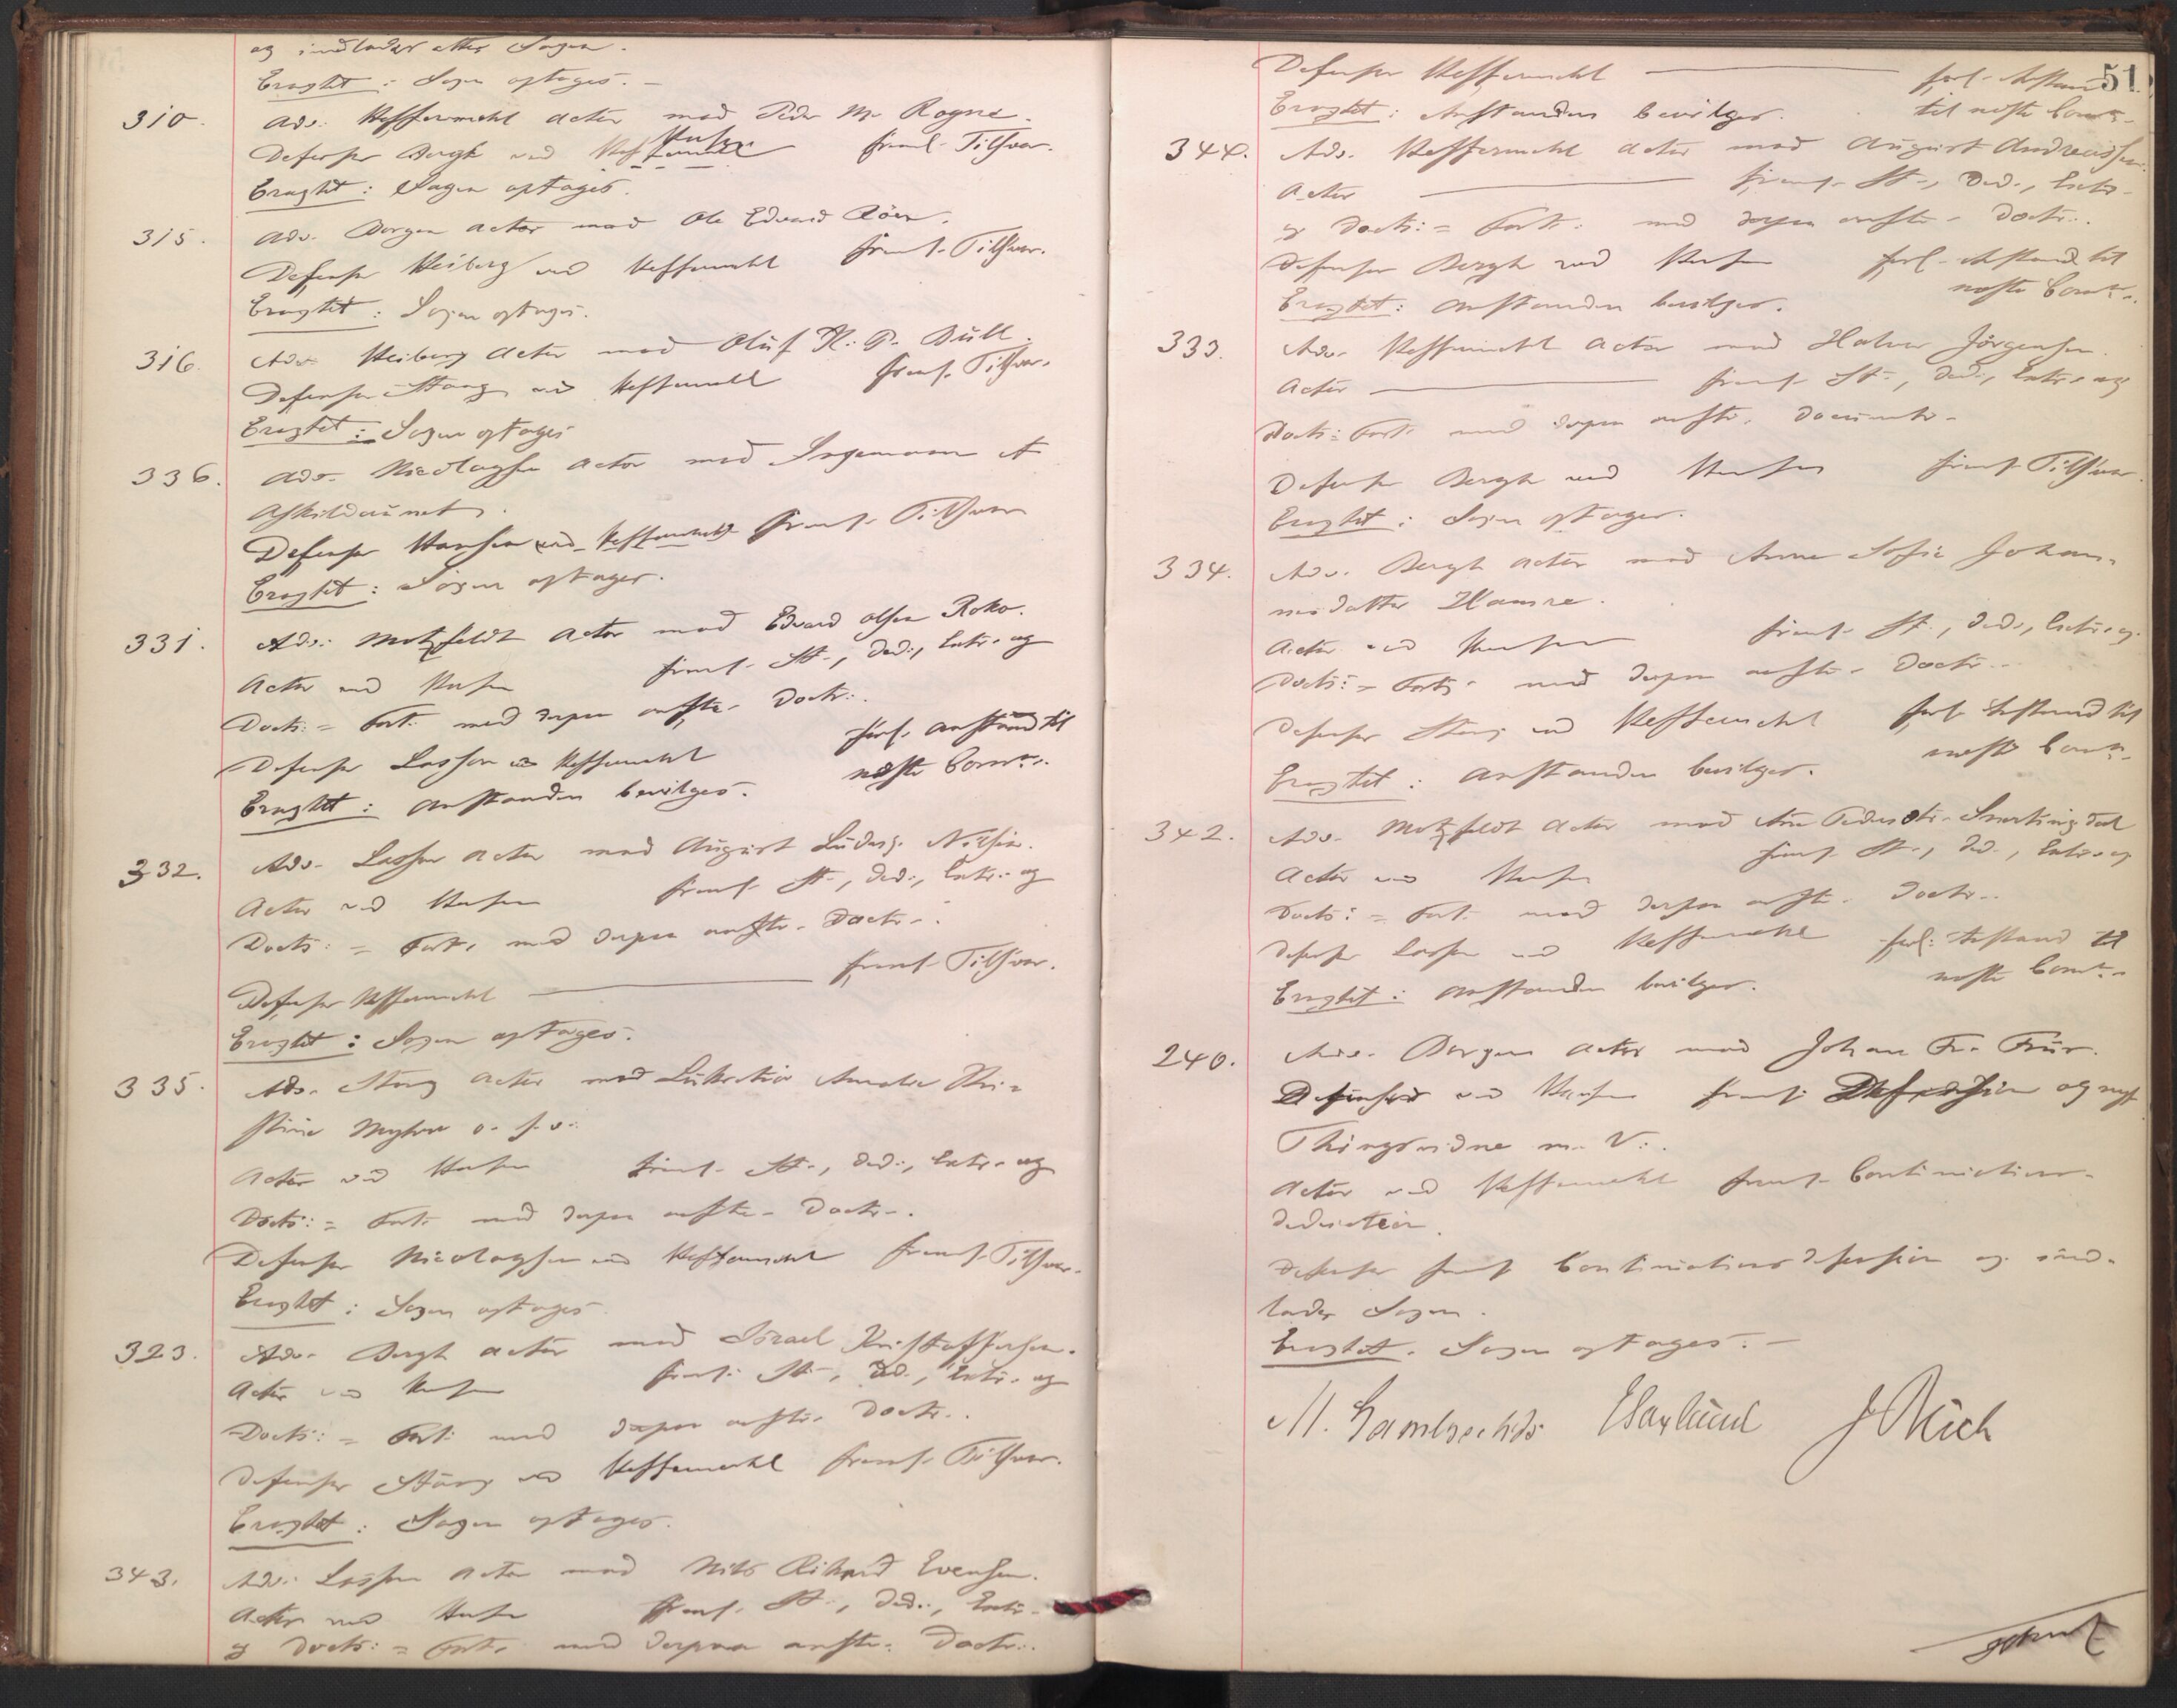 og indlader atter Sagen.
Eragtet: Sagen optages. -
310. Adv. Heffermehl Actor mod Peder M. Rogne.
Defensor Bergh ved Hansen freml. Tilsvar.
Eragtet: Sagen optages.
315. Adv. Borgen Actor mod Ole Edvard Röer.
Defensor Heiberg ved Heffermehl freml. Tilsvar.
Eragtet: Sagen optages.
316. Adv. Heiberg Actor mod Oluf H. P. Bull.
Defensor Stang ved Heffermehl freml. Tilsvar.
Eragtet: Sagen optages
336. Adv. Nicolaysen Actor mod Ingemann A
Defensor Hansen ved Heffermehl freml. Tilsvar
Eragtet: Sagen optages.
331. Adv. Motzfeldt Actor mod Edvard Olsen Roko.
Actor ved Hansen freml. St., Ded., Extr. og
Docts: = Fort. med derpaa anfte. Doctr.
Defensor Lasson ved Heffermehl forl. Anstand til
næste Course.
Eragtet: Anstanden bevilges.
332. Adv. Lasson Actor mod August Ludvig Nilsen.
Actor ved Hansen freml. St., Ded., Extr. og
Docts: = Fort. med derpaa anfte. Doctr.
Defensor Heffermehl — freml. Tilsvar.
Eragtet: Sagen optages.
335. Adv. Stang Actor mod Lukretia Amalie Kri-
stine Myhre o. s. v.
Actor ved Hansen freml. St., Ded., Extr. og
Docts: = Fort. med derpaa anfte. Doctr.
Defensor Nicolaysen ved Heffermehl freml. Tilsvar.
Eragtet: Sagen optages.
323. Adv. Bergh Actor mod Israel Kristoffersen.
Actor ved Hansen freml. St., Ded., Extr. og
Docts: = Fort. med derpaa anfte. Doctr.
Defensor Stang ved Heffermehl freml. Tilsvar.
Eragtet: Sagen optages.
343. Adv. Lasson Actor mod Nils Rikard Evensen.
Actor ved Hansen freml. St., Ded., Extr.
og Docts: = Fort. med derpaa anfte. Doctr.
51.
Defensor Heffermehl — forl. Anstand
til næste Course.
Eragtet: Anstanden bevilges.
344. Adv. Heffermehl Actor mod August Andreassen.
Actor — freml. St., Ded., Extr.
og Docts: = Fort. med derpaa anfte. Doctr.
Defensor Bergh ved Hansen forl. Anstand til
næste Course.
Eragtet: Anstanden bevilges.
333. Adv. Heffermehl Actor mod Halvor Jörgensen.
Actor — freml. St., Ded., Extr. og
Docts: Fort. med derpaa anfte. Documenter.
Defensor Bergh ved Hansen freml. Tilsvar.
Eragtet: Sagen optages.
334. Adv. Bergh Actor mod Anne Sofie Johan-
nesdatter Hamre.
Actor ved Hansen freml. St., Ded., Extr. og
Docts: = Fort. med derpaa anfte. Doctr.
Defensor Stang ved Heffermehl forl. Anstand til
næste Course.
Eragtet: Anstanden bevilges.
342. Adv. Motzfeldt Actor mod Ane Pedersdtr. Smertingdal
Actor ved Hansen freml. St., Ded., Extr. og
Docts: = Fort. med derpaa anfte. Doctr.
Defensor Lasson ved Heffermehl forl. Anstand til
næste Course.
Eragtet: Anstanden bevilges.
240. Adv. Borgen Actor mod Johan Fr. Frür.
Defensor ved Hansen freml. Defension og nyt
Thingsvidne m. V.
Actor ved Heffermehl freml. Continuations-
deduction.
Defensor freml. Continuationsdefension og ind-
lader Sagen.
Eragtet. Sagen optages. -